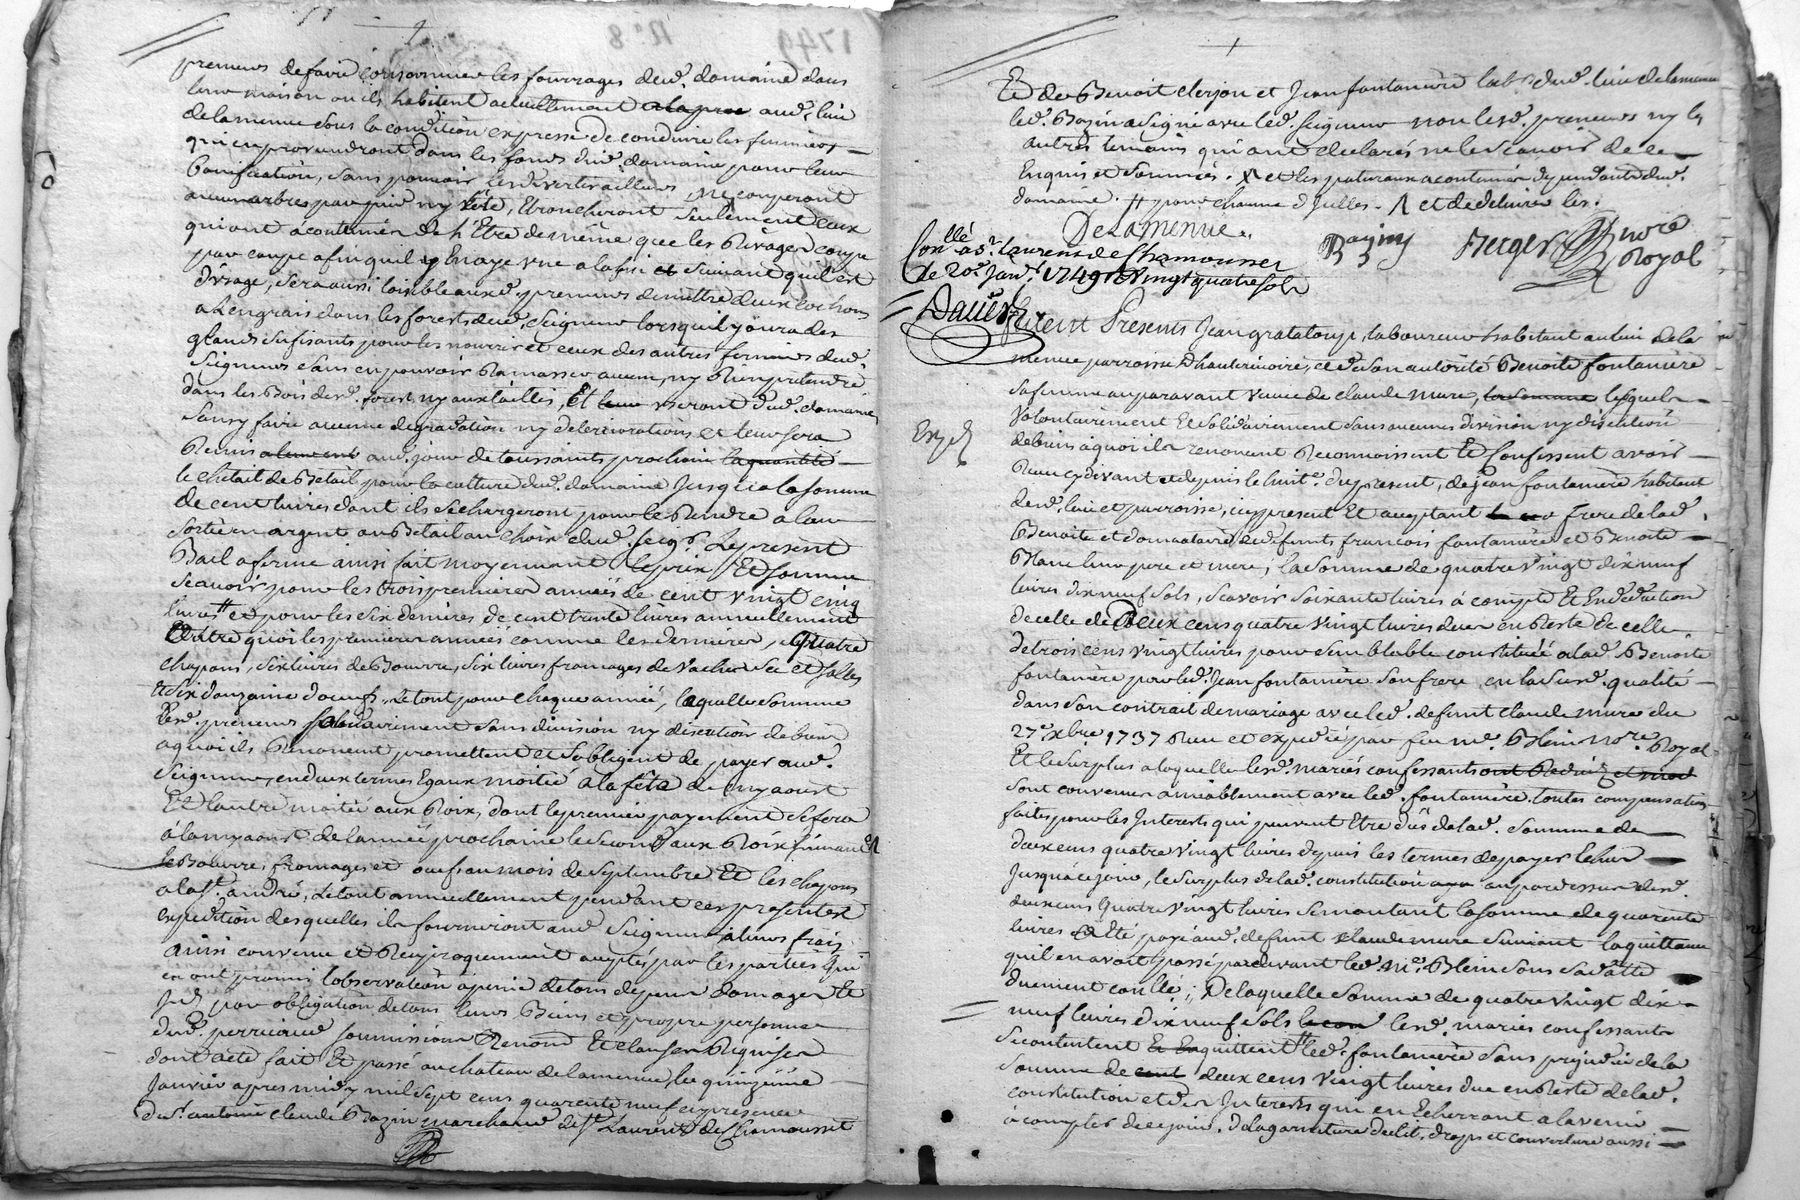 preneurs de faire consommer les fourrages dud. domaine dans
leur maison ou ils habitent actuellement a la pnce aud. lieu
delamenue sous la condition expresse de conduire les fumiers
qui en proviendront dans les fonds dud. domaine pour leur
bonification, sans pouvoir les divertir ailleurs, ne couperont
aucun arbres par pied ny tête, Ebrancheront seulement ceux
qui ont acoutumés de l'Etre de même que les Rivages coupe
par coupe afin quil y En aye une a la fois et suivant quil est
d'usage, sera aussi loisible auxd. preneurs de mettre deux cochons
a L'engrais dans les forests dud. Seigneur lorsquil y aura des
glands sufisants pour les nourrir et ceux des autres fermiers dud.
Seigneur sans en pouvoir Ramasser aucun, ny Rien pretendre
dans les Bois desd. forest ny aux taillis, Et useront dud. domaine
sans y faire aucune degradation ny deteriorations et leur sera
Remis aud. jour de toussaints prochain la quantité
le chetail de Bétail pour la culture dud. domaine Jusqu'a la somme
de cent livres dont ils se chargeront pour le Rendre a leur
sortie en argent ou Bétail au choix dud. seigr. Le present
Bail a ferme ainsi fait moyennant le prix Et somme
scavoir pour les trois premieres années de cent vingt cinq
livres et pour les six dernieres de cent trente livres annuellement
Et outre quoi les premieres années comme les dernieres, quatre
chapons, six livres de Beurre, six livres fromages de vache sec et salles
et six douzaine d'oeufs, Le tout pour chaque année, laquelle somme
lesd. preneurs solidairement sans division ny discution de biens
a quoi ils Renoncent promettent et s'obligent de payer aud.
Seigneur, en deux termes Egaux moitié a la fête de my aoust
Et l'autre moitié aux Rois, dont le premier payement se fera
a la my aoust de l'année prochaine le second aux Rois suivant Et
le Beurre, fromages et oeufs au mois de septembre Et les chapons
a la st. andré, Le tout annuellement pendant ces presentes
expedition desquelles ils fourniront aud. Seigneur a leurs frais
ainsi convenu et Reciproquement acceptés par les parties qui
en ont promis l'observation a peine de tous depens domages Et
Jnts. par obligation de tous leurs Biens et propre personne
dud. perreiaud soumissions Renond. Et clauses Requises
dont acte fait Et passé au chateau de lamenue le quinzième
Janvier apres midy mil sept cens quarente neuf en presence
de sr. antoine claude Bazin marchand de st. Laurent de Chamousset
Et de Benoit clerjon et Jean fontanière lab. dud. lieu de lamenue
led. Bazin a signé avec led. seigneur non lesd. preneurs ny les
autres temoins qui ont declarés ne le scavoir de ce
Enquis et sommés. et les paturaux acoutumés dependants dud.
domaine. pour chaume d'Juilles. et de detruire les.
Delamenue.
Baziny
Berger
Nore Royal
Conllé a St Laurens de Chamousset
Le 20e Janr. 1749 R vingt quatre sols
Daüer
Furent Presents Jean grataloup, laboureur habitant au lieu de la
menue parroisse d'hauterivoire, et de son autorité Benoite fontanière
sa femme auparavant veuve de claude mure, lesquels
Volontairement Et solidairement sans aucunes division ny discution
de biens a quoi ils renoncent Reconnoissent Et Confessent avoir
Exp. d.
Receu cy divant et depuis le huit. du present, de jean fontanière habitant
dud. lieu et parroisse, icy present Et aceptant frere de lad.
Benoite et donnataire de defunts francois fontanière et Benoite
Blanc leur pere et mere, la somme de quatre vingt dix neuf
livres dix neuf sols, scavoir soixante livres à compte Et En deduction
de celle de Deux cens quatre vingt livres dues en Reste de celle
de trois cens vingt livres pour semblable constituée a lad. Benoite
fontanière par led. Jean fontanière son frere, en la susd. qualité
dans son contrait de mariage avec led. defunt claude mure du
27e. xbre 1737 Receu et expedié par feu me. Blein Nore. Royal
Et le surplus a laquelle lesd. mariés confessants
sont convenus amiablement avec led. fontanière toutes compensations
faites pour les Interests qui peuvent Etre dûs de lad. somme de
deux cens quatre vingt livres depuis les termes de payer Echus
Jusqu'a ce jour, le surplus de lad. constitution au pardessus desd.
deux cens quatre vingt livres se montant la somme de quarente
livres a Eté payé aud. defunt claude mure suivant la quittance
quil en avoit passé pardevant led. Me. Blein sous sa datte
duement conllé; De laquelle somme de quatre vingt dix
neuf livres dix neuf sols lesd. mariés confessants
se contentent Et En quittent led. fontanière sans prejudice de la
somme de deux cens vingt livres due en Reste de lad.
constitution et des Interests qui en Echerront a l'avenir
à compter de ce jour, de la garniture de lit, draps et couverture aussi